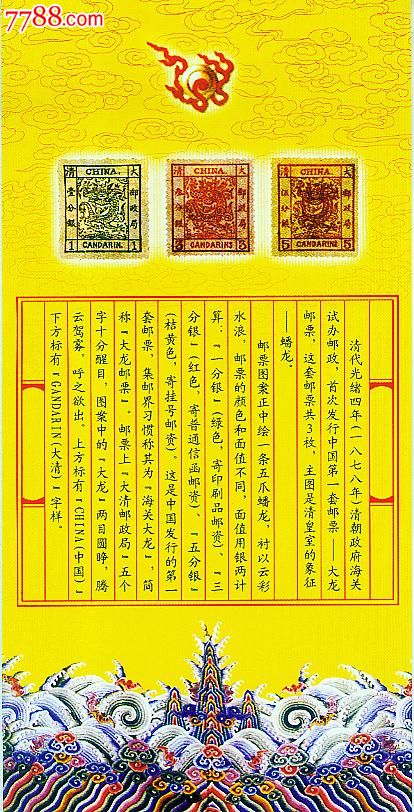 7788.com
清 CHINA. 大
壹分銀
郵政局
1 CANDARIN 1
清 CHINA. 大
叁分銀
郵政局
3 CANDARINS 3
清 CHINA. 大
伍分銀
郵政局
5 CANDARINS 5
清代光绪四年(一八七八年)清朝政府海关
试办邮政,首次发行中国第一套邮票——大龙
邮票,这套邮票共3枚,主图是清皇室的象征
——蟠龙。
邮票图案正中绘一条五爪蟠龙,衬以云彩
水浪,邮票的颜色和面值不同,面值用银两计
算:“一分银”(绿色,寄印刷品邮资)、“三
分银”(红色,寄普通信函邮资)、“五分银”
(桔黄色,寄挂号邮资)。这是中国发行的第一
套邮票,集邮界习惯称其为“海关大龙”,简
称“大龙邮票”。邮票上“大清邮政局”五个
字十分醒目,图案中的“大龙”两目圆睁,腾
云驾雾,呼之欲出。上方标有“CHINA(中国)”
下方标有“CANDARIN(大清)”字样。